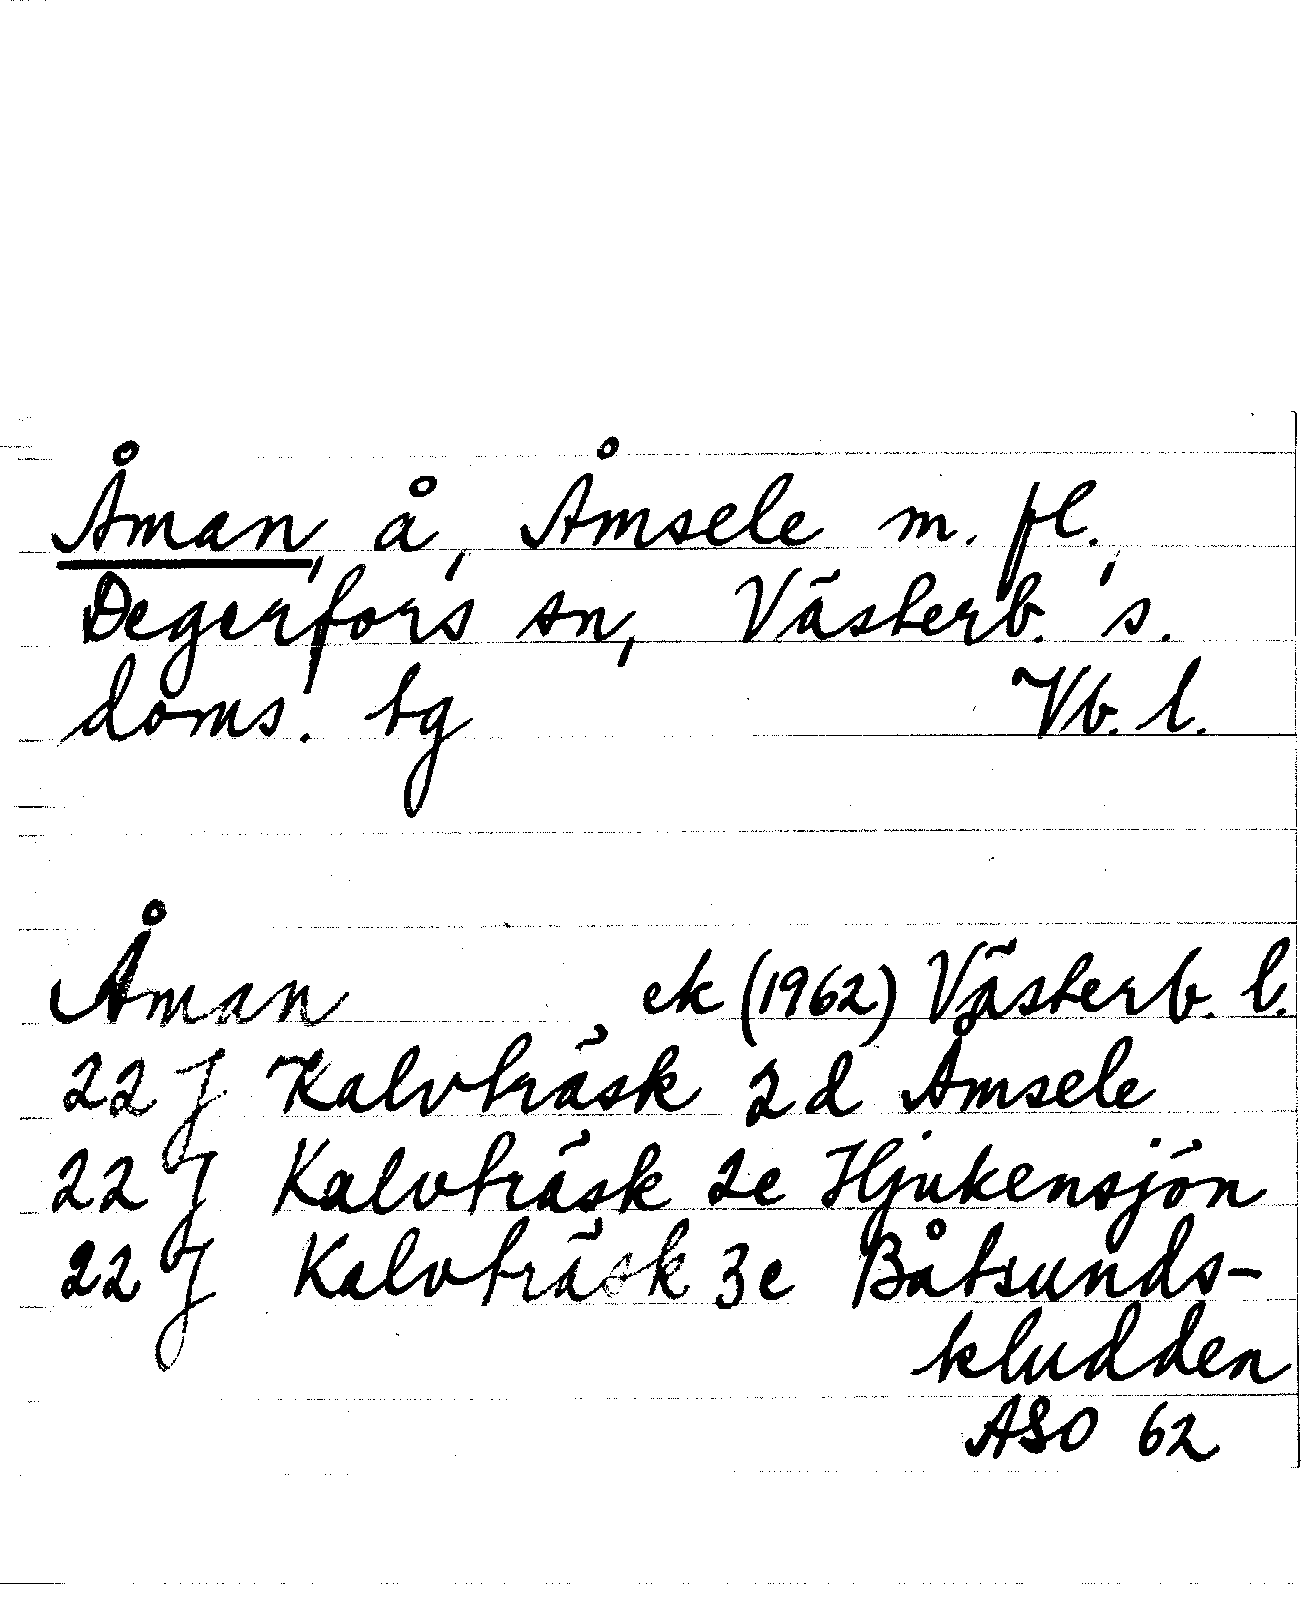 Åman, å, Åmsele m. fl.,
Degerfors sn, Västerb. s.
doms. tg Vb. l.
Åman ek (1962) Västerb. l.
22 J Kalvträsk 2d Åmsele
22 J Kalvträsk 2e Hjukensjön
22 J Kalvträsk 3e Båtsunds-
kludden
ASO 62